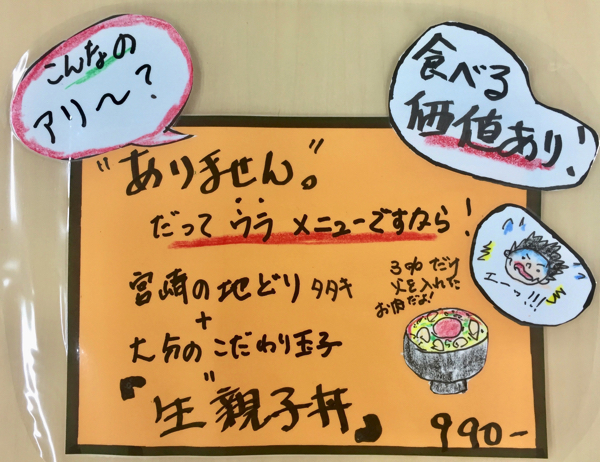 こんなの
アリ〜?
食べる
価値あり!
"ありません。"
だって ウラ メニューですもん!
エーっ!!!
宮崎の地どり タタキ
+
大分の こだわり玉子
3秒だけ
火を入れた
お肉だよ!
『"生"親子丼』
990-